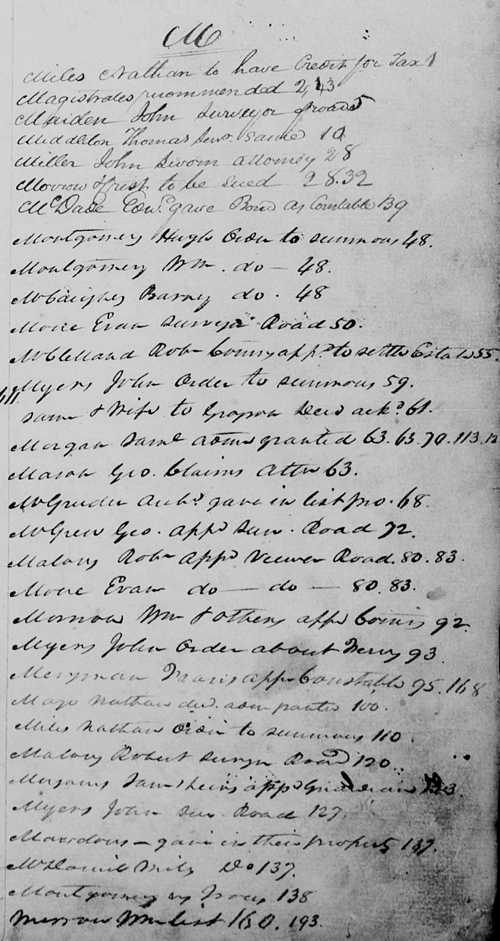 M
Miles Nathan to have Credit for Tax 1
Magistrates recommended 2, 43
Maiden John Surveyor of road 5
Middleton Thomas Survr. same 19
Miller John Sworn attorney 28
to be sued 28.32
gave Bond as Constable 39
Montgomery Hugh Order to summons 48.
Montgomery Wm. do — 48.
Barney do. 48
More Evan Surveyor Road 50.
McClelland Robt. appd. to settle 55
Myers John Order to summons 59.
Same & Wife to Grayson Deed ackd. 61.
Morgan Saml. admr. granted 63. 65. 70. 113.
Mason Geo. Claims Attn 63.
McGruder gave in list pro. 68.
McGrew Geo. Appd. Sur. Road 72.
Malony Robt. appd. Viewer Road. 80. 83.
More Evan do — do — 80. 83.
Morrow Wm & others appd. Comrs 92.
Myers John Order about Ferry 93.
Merryman appd. Constable 95. 168
Mayo Nathan 100.
Miles Nathan Order to summons 110
Malony Robert Survyr Road 120
Saml heirs appd. Guardian
Myers John Sur. Road 127.
gave in their property 137.
McDaniel Do 137.
Montgomery vs 138
Morrow Wm list 160. 193.